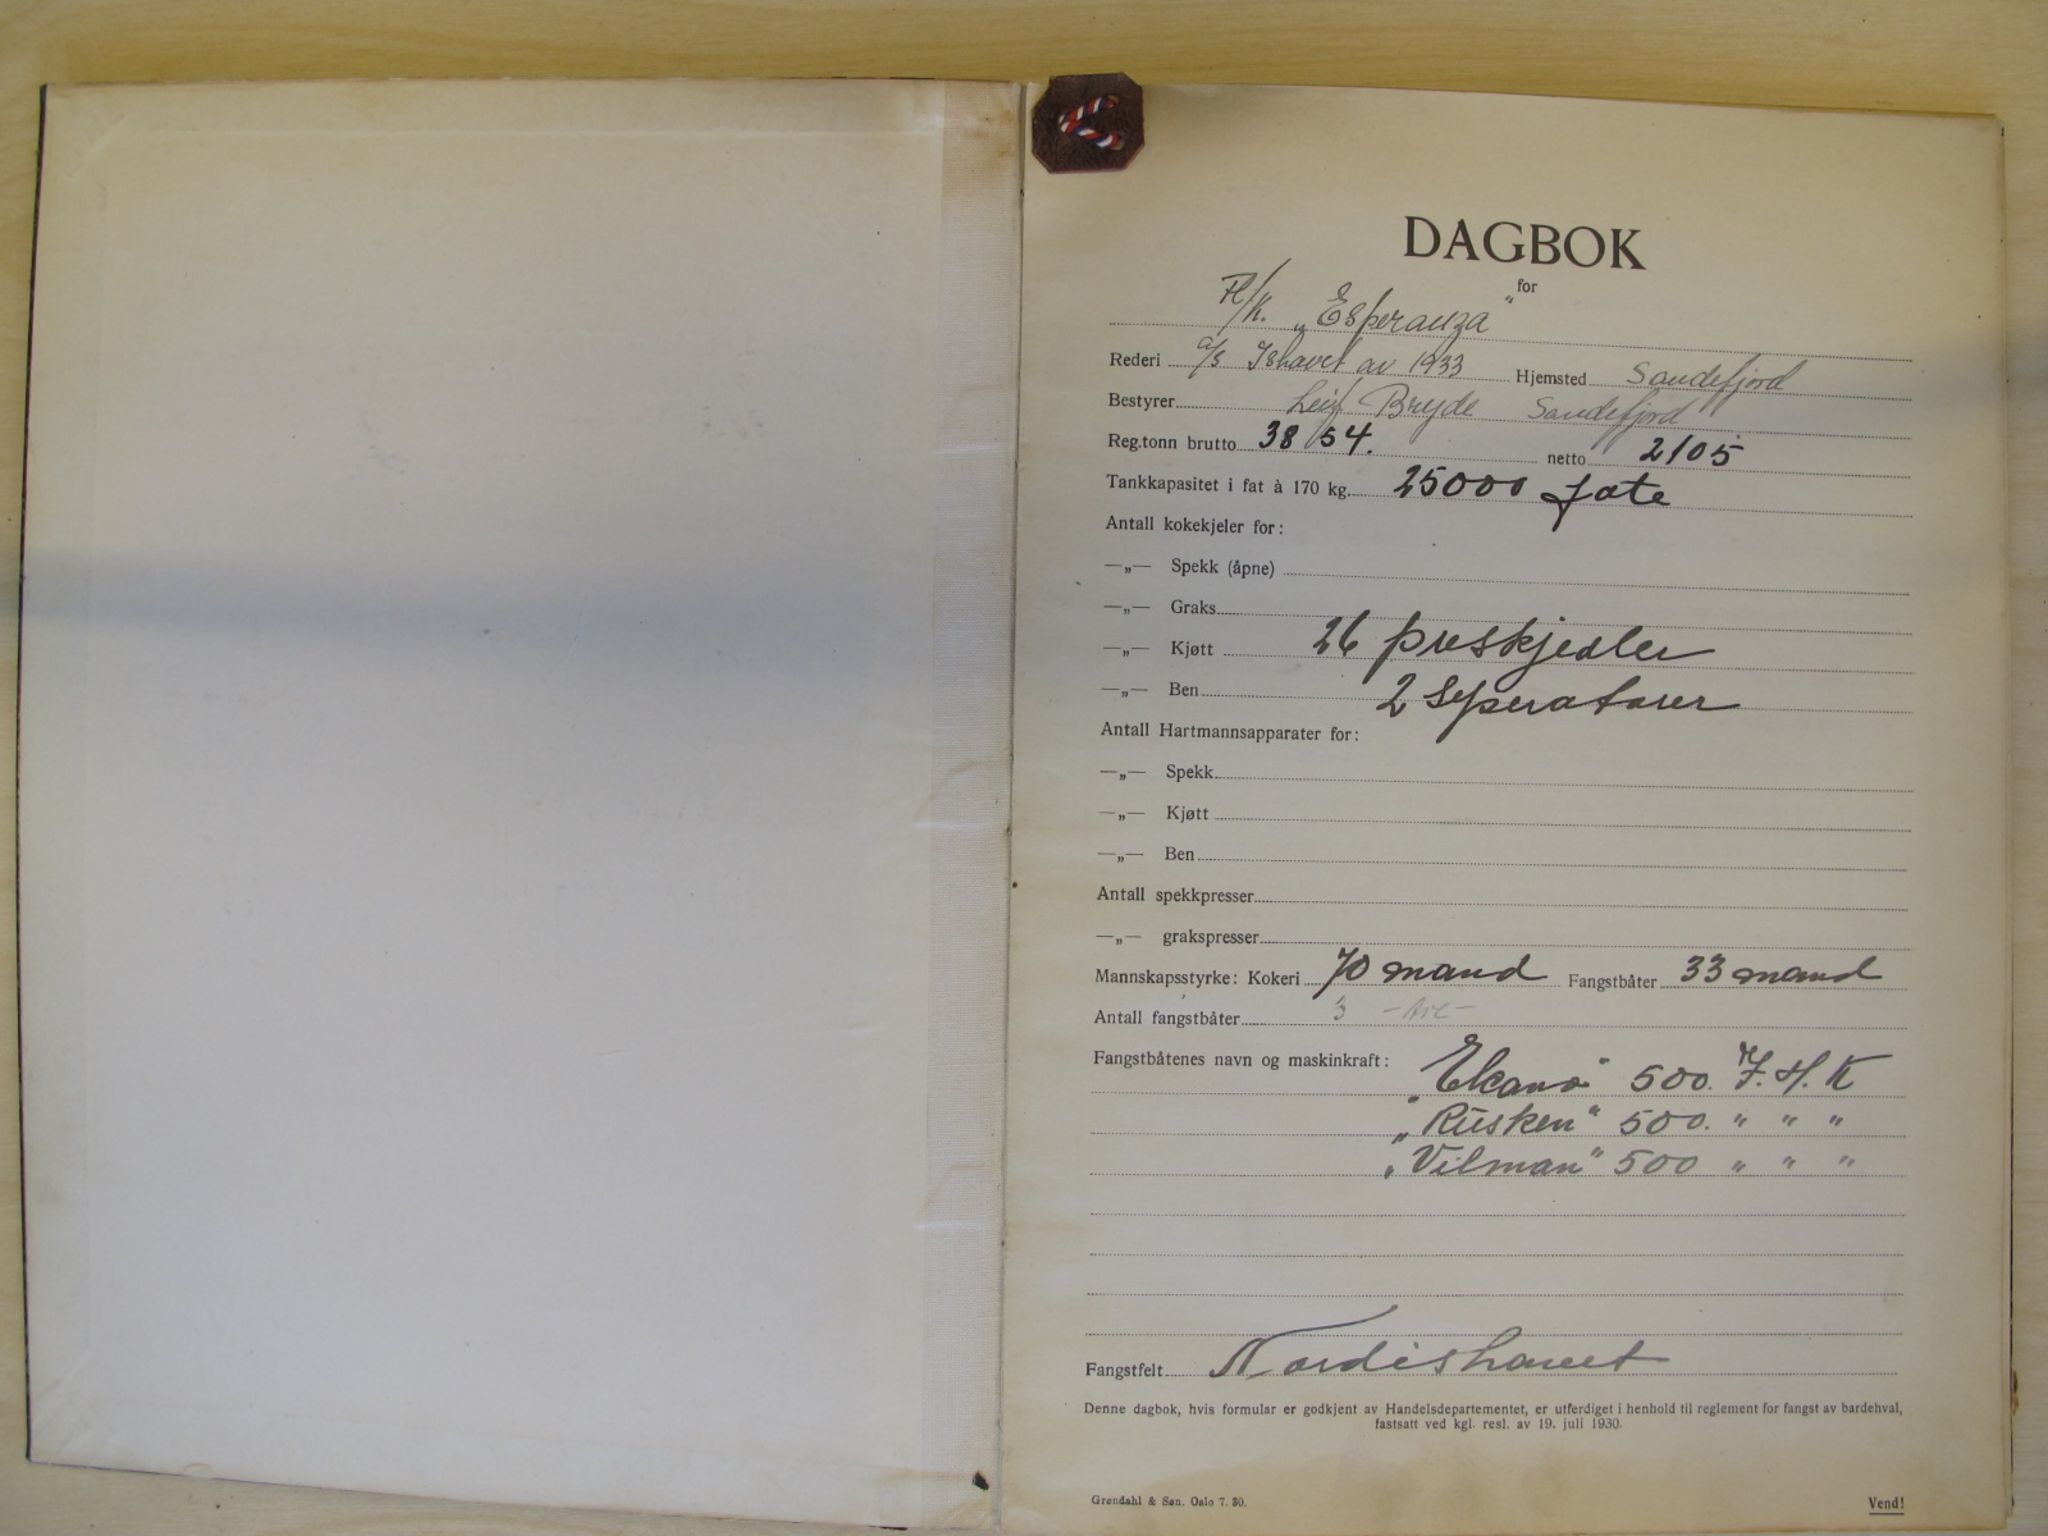 DAGBOK
for
Fl/K. „Esperanza"
Rederi a/s Ishavet av 1933 Hjemsted Sandefjord
Bestyrer Leif Bryde Sandefjord
Reg.tonn brutto 3854. netto 2105
Tankkapasitet i fat à 170 kg. 25000 fate
Antall kokekjeler for:
—„— Spekk (åpne)
—„— Graks
—„— Kjøtt 26 preskjedler
—„— Ben 2 Seperatorer
Antall Hartmannsapparater for:
—„— Spekk
—„— Kjøtt
—„— Ben
Antall spekkpresser
—„— grakspresser
Mannskapsstyrke: Kokeri 70 mand Fangstbåter 33 mand
Antall fangstbåter 3 -tre-
Fangstbåtenes navn og maskinkraft:
„Ekano" 500. I. H. K
„Rusken" 500. " " "
„Vilman" 500 " " "
Fangstfelt Nordishavet
Denne dagbok, hvis formular er godkjent av Handelsdepartementet, er utferdiget i henhold til reglement for fangst av bardehval,
fastsatt ved kgl. resl. av 19. juli 1930.
Grøndahl & Søn, Oslo 7. 30.
Vend!